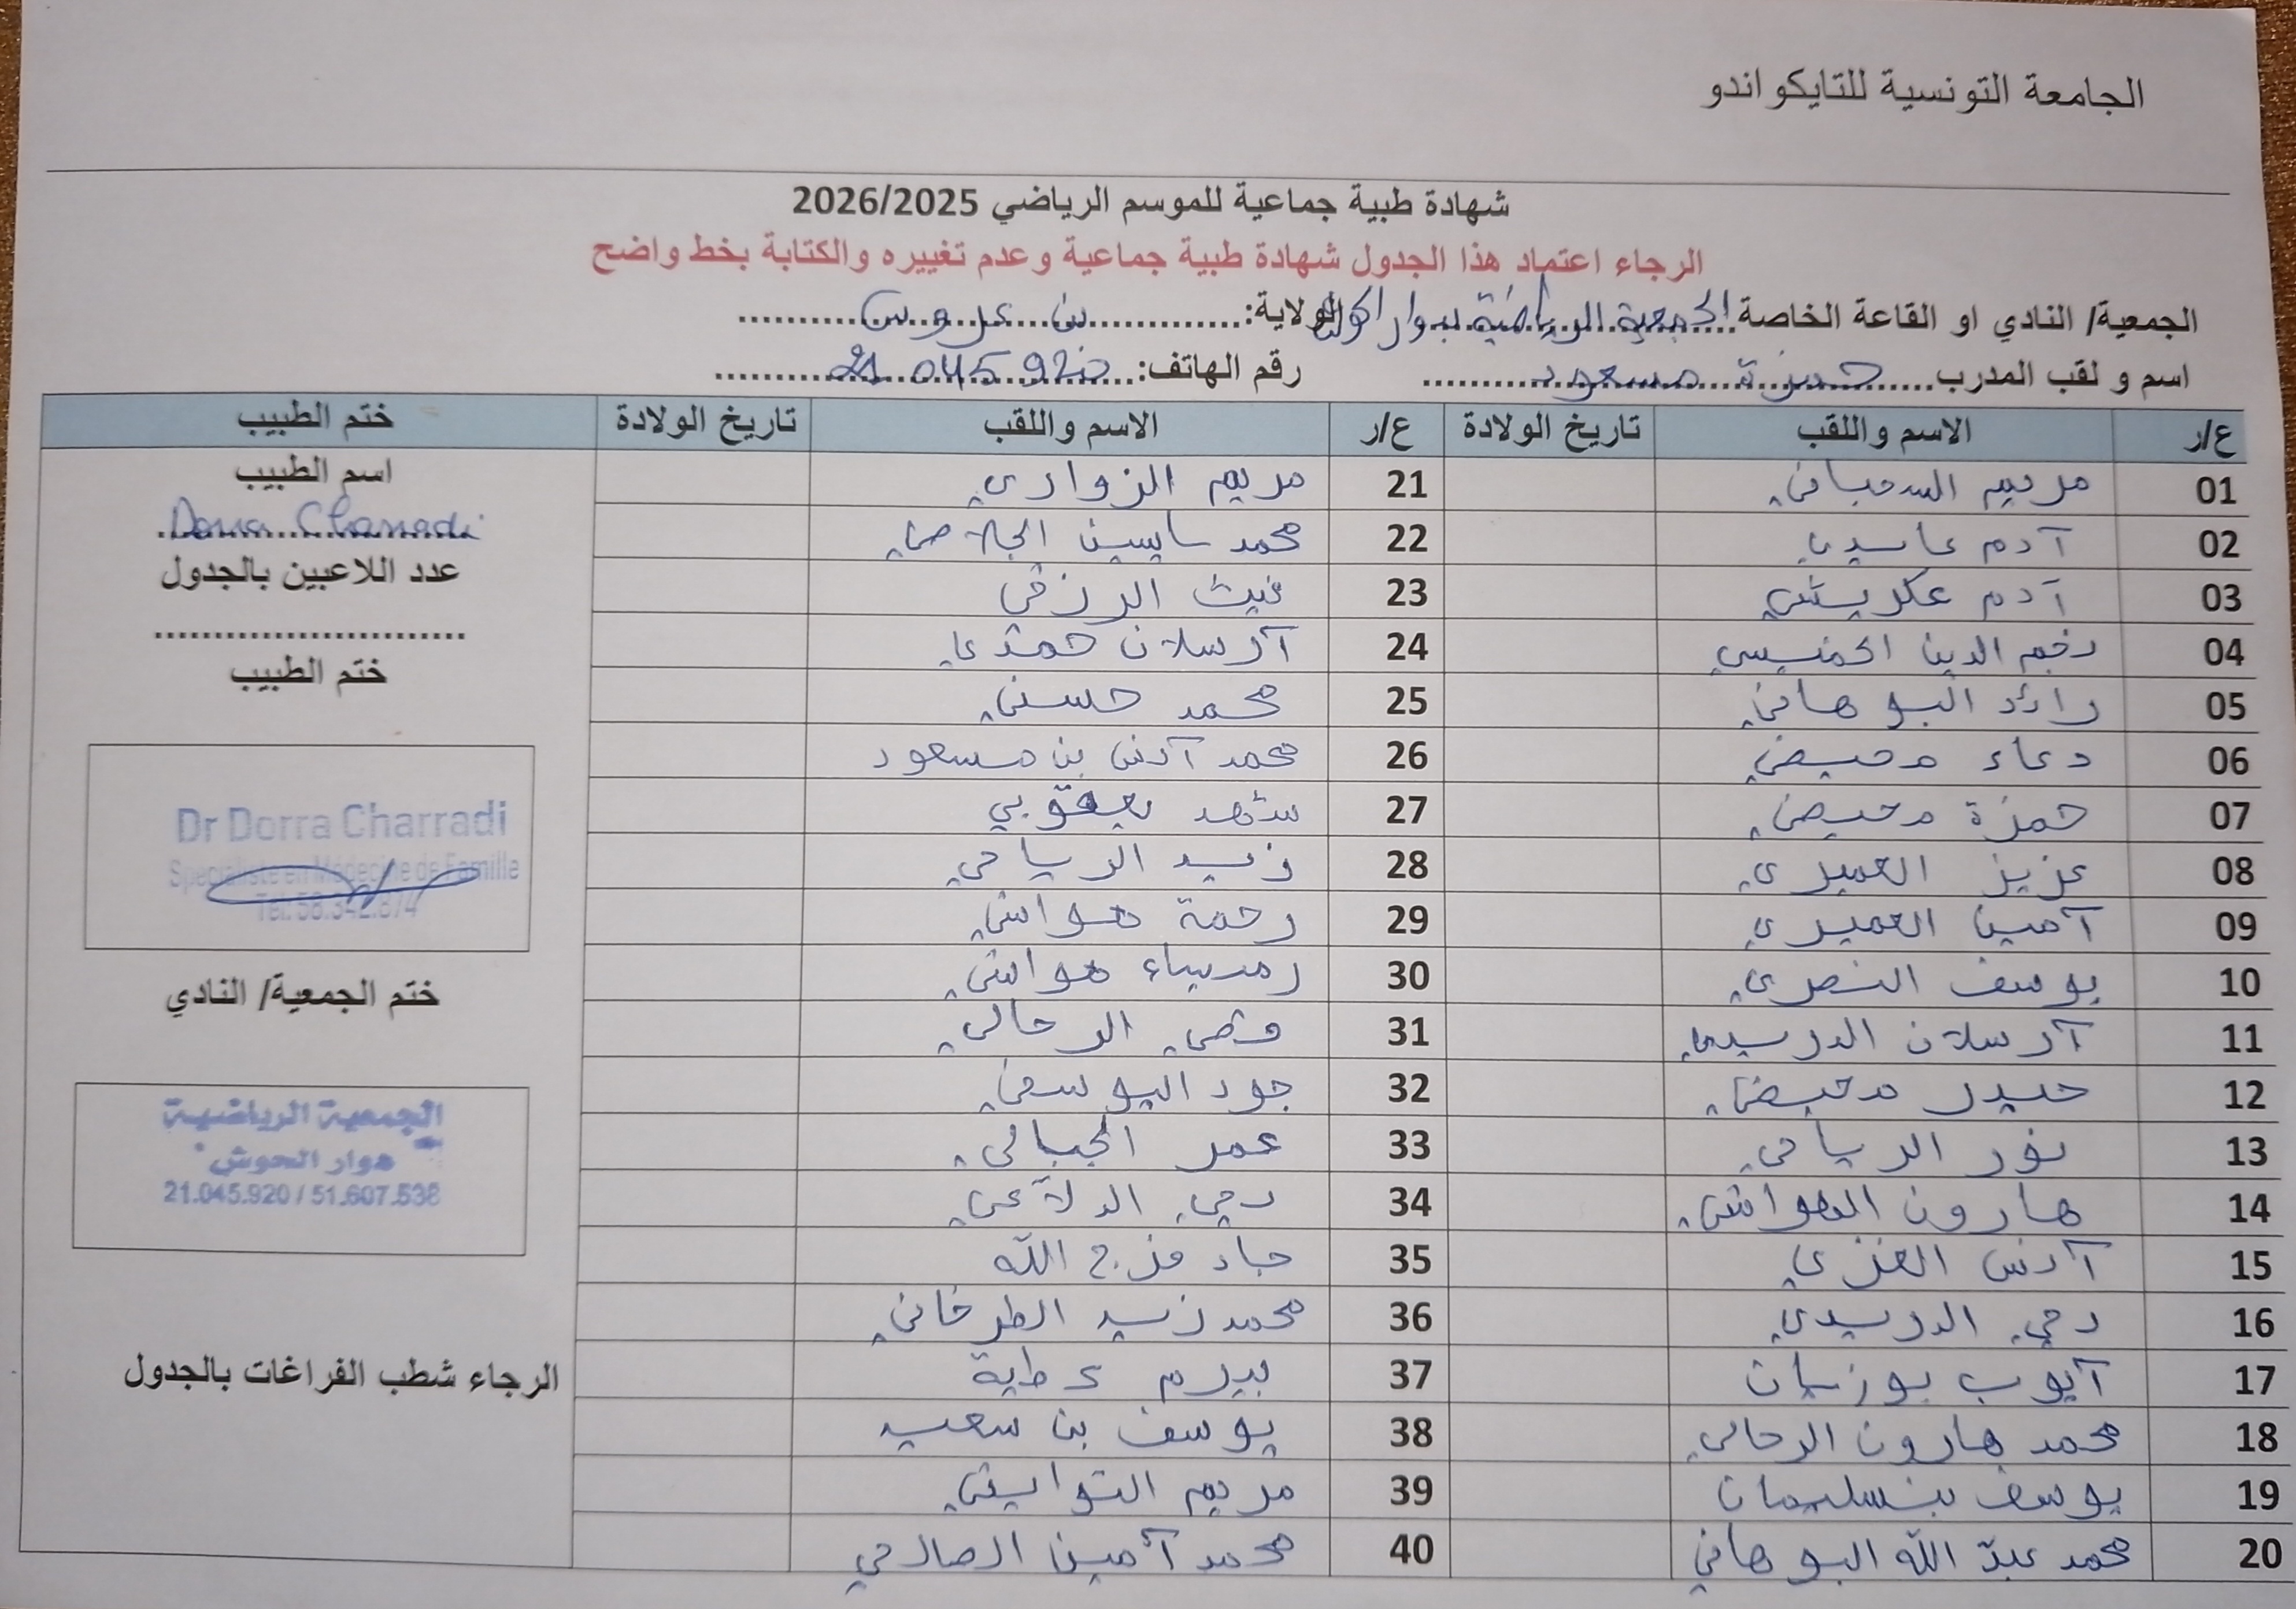 الجامعة التونسية للتايكواندو
شهادة طبية جماعية للموسم الرياضي 2026/2025
الرجاء اعتماد هذا الجدول شهادة طبية جماعية وعدم تغييره والكتابة بخط واضح
الجمعية/ النادي او القاعة الخاصة الجمعية الرياضية بهوار الحوش الولاية: بن عروس
اسم و لقب المدرب حمزة مسعود رقم الهاتف: 21 045 920
ع/ر الاسم واللقب تاريخ الولادة ع/ر الاسم واللقب تاريخ الولادة ختم الطبيب
01 مريم السحباني 21 مريم الزواري
02 آدم عابدي 22 محمد ياسين الجلاصي
03 آدم عكريشي 23 غيث الرزقي
04 نجم الدين الخميسي 24 آرسلان حمدي
05 رائد البوهاني 25 محمد حسني
06 دعاء محيضي 26 محمد آنس بن مسعود
07 حمزة محيضي 27 شهد يعقوبي
08 عزيز العميري 28 زيد الرياحي
09 آمين العميري 29 رحمة هواشي
10 يوسف النصري 30 رميساء هواشي
11 آرسلان الدريدي 31 قصي الرحالي
12 حيدر محيضي 32 جود اليوسفي
13 نور الرياحي 33 عمر الجبالي
14 هارون الهواشي 34 يحي الدلاعي
15 آنس العنزي 35 جاد فرج الله
16 يحي الدريدي 36 محمد زيد الطرخاني
17 آيوب بوزيان 37 بيرم عطية
18 محمد هارون الرحالي 38 يوسف بن سعيد
19 يوسف بنسليمان 39 مريم التوايتي
20 محمد عبد الله البوهاني 40 محمد آمين الصالحي
اسم الطبيب
Dorra Charradi
عدد اللاعبين بالجدول
ختم الطبيب
Dr Dorra Charradi
Specialiste en Médecine de Famille
Tél: 58.342.874
ختم الجمعية/ النادي
الجمعية الرياضية
هوار الحوش
21.045.920 / 51.607.538
الرجاء شطب الفراغات بالجدول